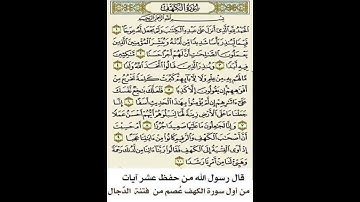 سُورَةُ الكَهْفِ
بِسْمِ اللَّهِ الرَّحْمَٰنِ الرَّحِيمِ
الْحَمْدُ لِلَّهِ الَّذِي أَنْزَلَ عَلَىٰ عَبْدِهِ الْكِتَابَ وَلَمْ يَجْعَلْ لَهُ عِوَجًا
قَيِّمًا لِيُنْذِرَ بَأْسًا شَدِيدًا مِنْ لَدُنْهُ وَيُبَشِّرَ الْمُؤْمِنِينَ الَّذِينَ
يَعْمَلُونَ الصَّالِحَاتِ أَنَّ لَهُمْ أَجْرًا حَسَنًا مَاكِثِينَ
فِيهِ أَبَدًا وَيُنْذِرَ الَّذِينَ قَالُوا اتَّخَذَ اللَّهُ وَلَدًا
مَا لَهُمْ بِهِ مِنْ عِلْمٍ وَلَا لِآبَائِهِمْ كَبُرَتْ كَلِمَةً تَخْرُجُ مِنْ
أَفْوَاهِهِمْ إِنْ يَقُولُونَ إِلَّا كَذِبًا فَلَعَلَّكَ بَاخِعٌ نَفْسَكَ
عَلَىٰ آثَارِهِمْ إِنْ لَمْ يُؤْمِنُوا بِهَٰذَا الْحَدِيثِ أَسَفًا إِنَّا
جَعَلْنَا مَا عَلَى الْأَرْضِ زِينَةً لَهَا لِنَبْلُوَهُمْ أَيُّهُمْ أَحْسَنُ عَمَلًا
وَإِنَّا لَجَاعِلُونَ مَا عَلَيْهَا صَعِيدًا جُرُزًا أَمْ حَسِبْتَ
أَنَّ أَصْحَابَ الْكَهْفِ وَالرَّقِيمِ كَانُوا مِنْ آيَاتِنَا عَجَبًا
إِذْ أَوَى الْفِتْيَةُ إِلَى الْكَهْفِ فَقَالُوا رَبَّنَا آتِنَا مِنْ لَدُنْكَ رَحْمَةً
وَهَيِّئْ لَنَا مِنْ أَمْرِنَا رَشَدًا
قال رسول الله من حفظ عشر آيات
من أول سورة الكهف عُصم من فتنة الدّجال